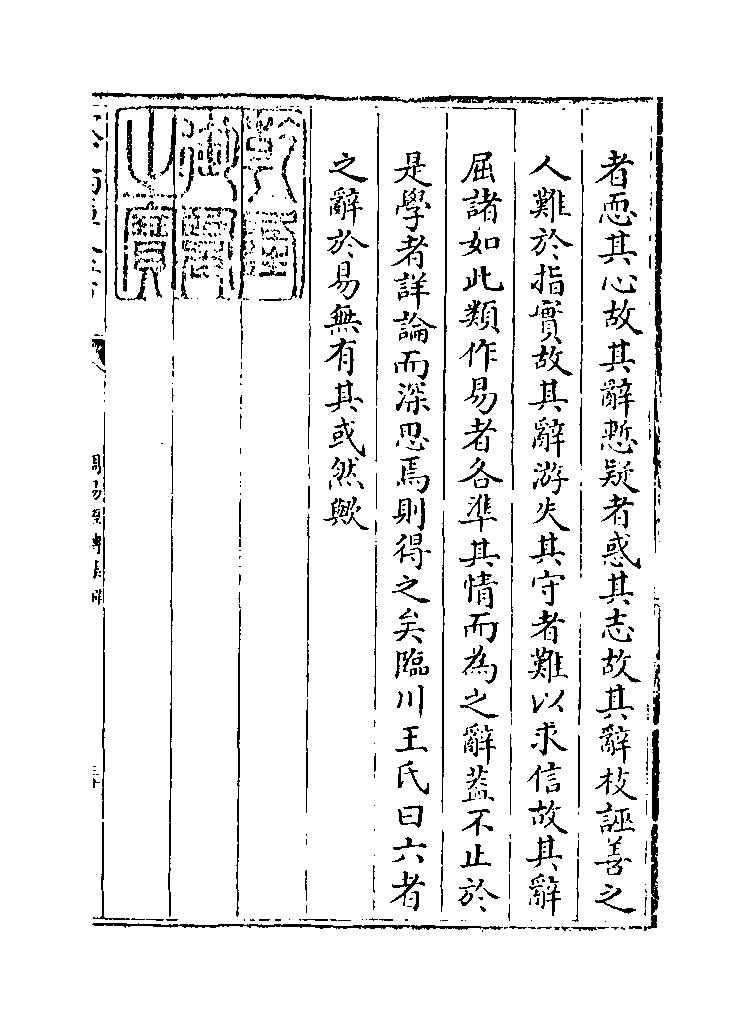 者恧其心故其辭慙疑者惑其志故其辭枝誣善之
人難於指實故其辭游失其守者難以求信故其辭
屈諸如此類作易者各準其情而為之辭葢不止於
是學者詳論而深思焉則得之矣臨川王氏曰六者
之辭於易無有其或然歟
乾隆御覽之寶
周易經傳集解